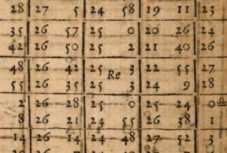 28 27 5 24 58 19 11 23
35 26 57 25 0 20 26 24
42 26 50 25 2 21 40 26
48 26 42 25 3 22 55 27
Re
55 26 35 25 3 24 9 28
2 26 28 25 0 25 24 0
8 26 21 24 55 26 38 1
14 26 14 24 48 27 52 3